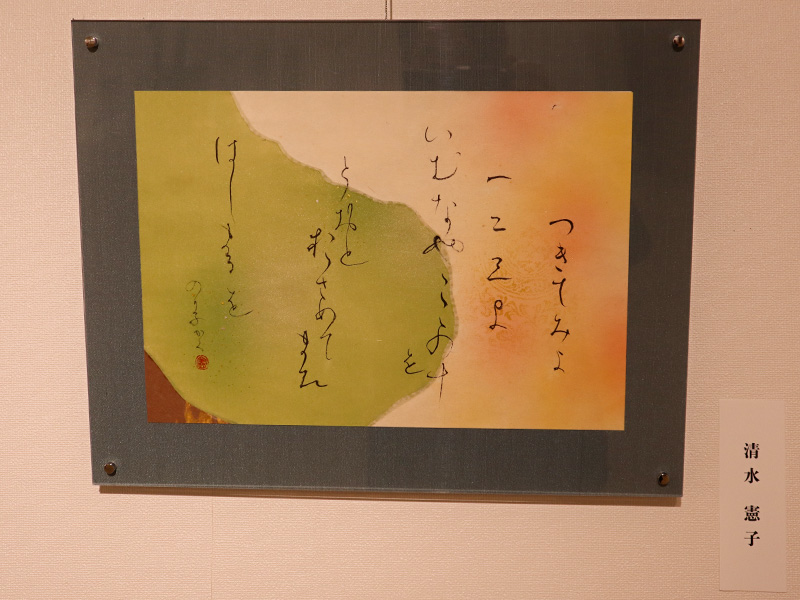 つきてみよ
一二三よ
いむなやこゝの十
を
とおと
おさめて
また
はしまるを
清水 憲子